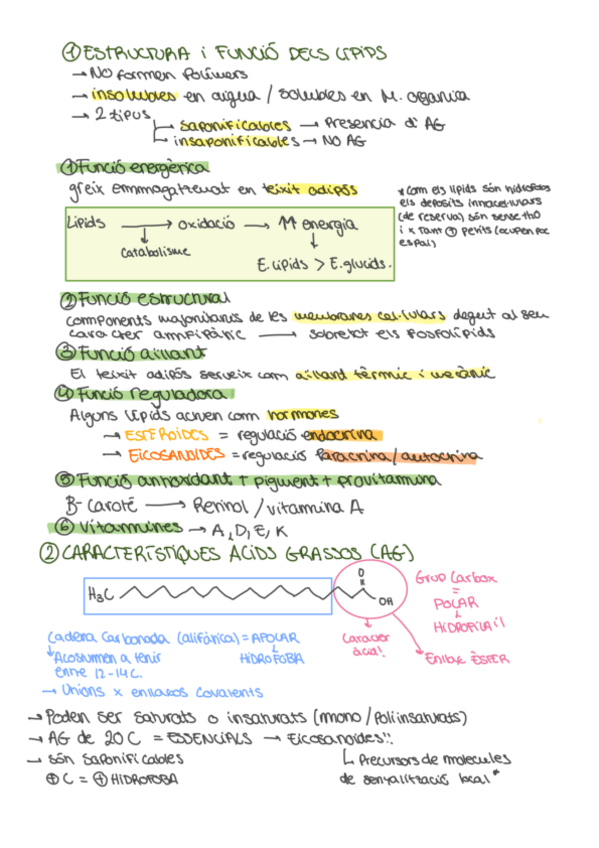 ① ESTRUCTURA i FUNCIÓ DELS LÍPIDS
→ NO formen Polímers
→ insolubles en aigua / Solubles en M. orgànica
→ 2 tipus
saponificables → Presencia d'AG
insaponificables → NO AG
① Funció energètica
greix emmagatzemat en teixit adipós
* Com els lípids són hidròfobs
els depòsits intracel·lulars
(de reserva) són sense H2O
i x tant ⊕ petits (ocupen poc
espai)
Lípids → oxidació → ↑↑ energia
Catabolisme
E. Lípids > E. glúcids.
② Funció estructural
components majoritaris de les membranes cel·lulars degut al seu
caràcter amfipàtic → sobretot els fosfolípids
③ Funció aïllant
El teixit adipós serveix com aïllant tèrmic i mecànic
④ Funció reguladora
Alguns lípids actuen com hormones
→ ESTEROIDES = regulació endocrina
→ EICOSANOIDES = regulació paracrina / autocrina
⑤ Funció antioxidant + pigment + provitamina
B-Carotè → Retinol / vitamina A
⑥ Vitamines → A, D, E, K
② CARACTERÍSTIQUES ÀCIDS GRASSOS (AG)
H3C
O
OH
Grup Carbox
=
POLAR
HIDROFÍLIC!
Cadena Carbonada (alifàtica) = APOLAR
HIDRÒFOBA
Acostumen a tenir
entre 12-14C.
Caràcter
àcid!
Enllaç ÈSTER
→ Unions x enllaços covalents
→ Poden ser saturats o insaturats (mono / Poliinsaturats)
→ AG de 20 C = ESSENCIALS → Eicosanoides!!
→ són saponificables
Precursors de molècules
de senyalització local *
⊕ C = ⊕ HIDRÒFOBA